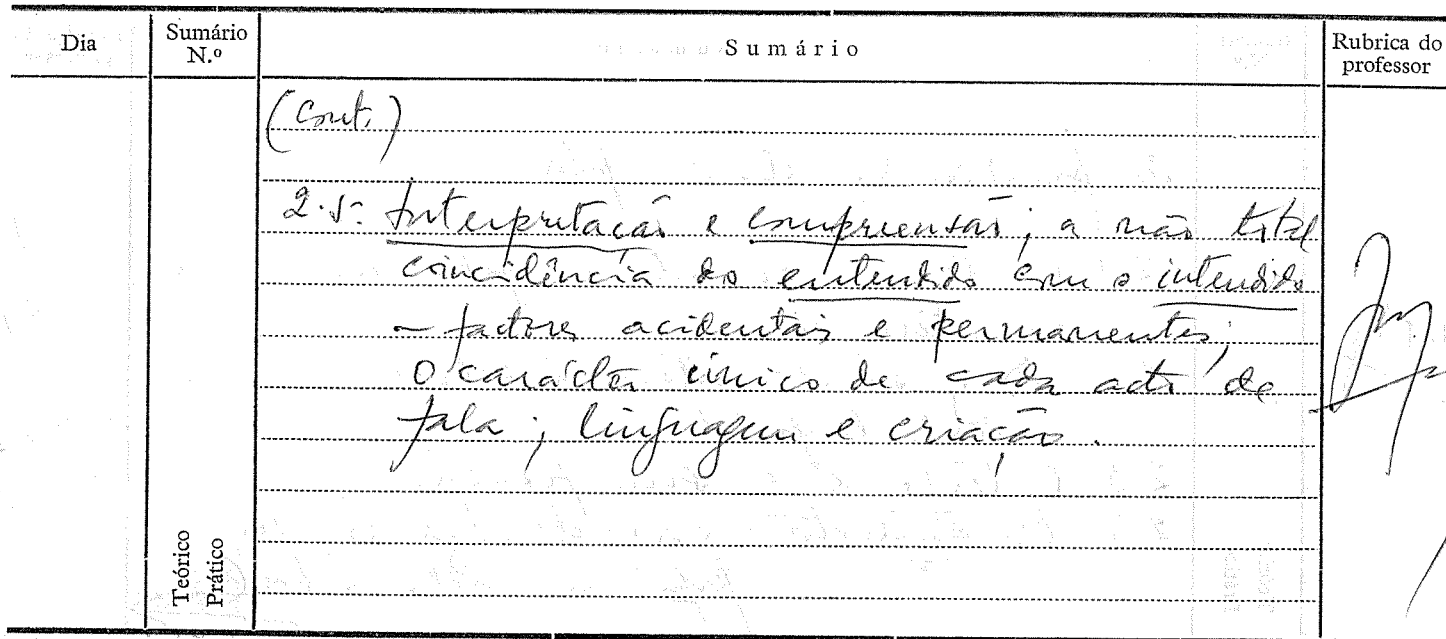 Dia
Sumário N.º
Sumário
Rubrica do professor
(Cont.)
2.5. Interpretação e compreensão; a não total
coincidência do entendido com o intendido
– factores acidentais e permanentes;
o carácter único de cada acto de
fala; linguagem e criação.
Teórico
Prático